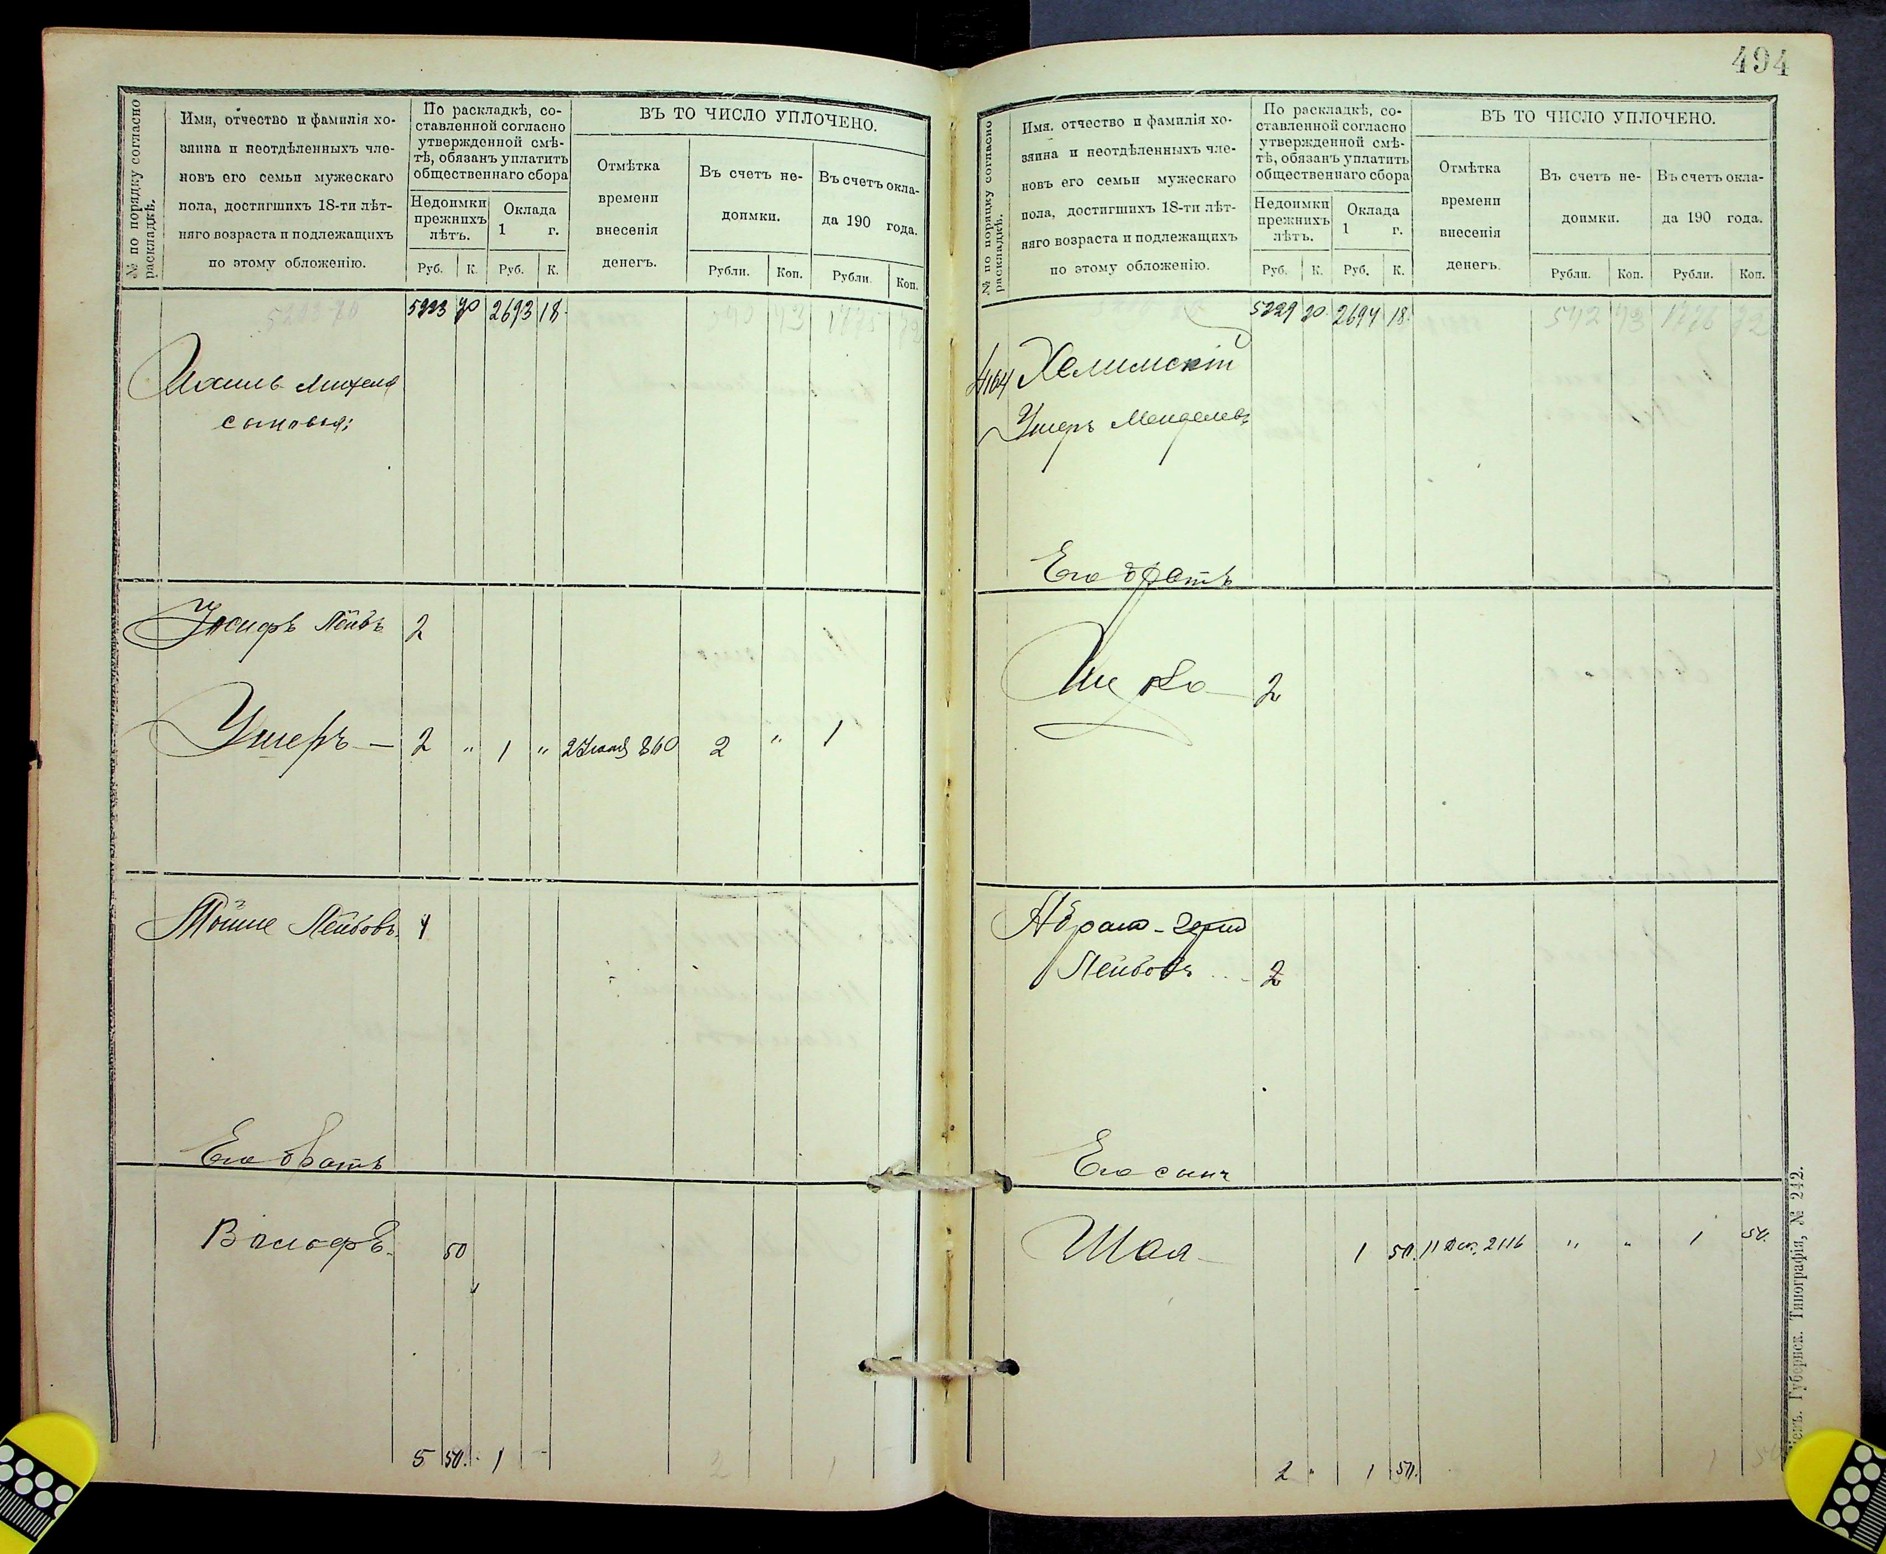 494
№ по порядку согласно раскладкѣ.
Имя, отчество и фамилія хо-
зяина и неотдѣленныхъ чле-
новъ его семьи мужескаго
пола, достигшихъ 18-ти лѣт-
няго возраста и подлежащихъ
по этому обложенію.
По раскладкѣ, со-
ставленной согласно
утвержденной смѣ-
тѣ, обязанъ уплатить
общественнаго сбора
Недоимки
прежнихъ
лѣтъ.
Оклада
1 г.
Руб. К. Руб. К.
ВЪ ТО ЧИСЛО УПЛОЧЕНО.
Отмѣтка
времени
внесенія
денегъ.
Въ счетъ не-
доимки.
Въ счетъ окла-
да 190 года.
Рубли. Коп. Рубли. Коп.
2693 18
сыновья:
Іосифъ Лейбъ 2
Ушеръ — 2 " 1 " 2 " 1
Мойше Лейбовъ
Его братъ
Вольфъ 50
5 50 1
2 1
№ по порядку согласно раскладкѣ.
Имя, отчество и фамилія хо-
зяина и неотдѣленныхъ чле-
новъ его семьи мужескаго
пола, достигшихъ 18-ти лѣт-
няго возраста и подлежащихъ
по этому обложенію.
По раскладкѣ, со-
ставленной согласно
утвержденной смѣ-
тѣ, обязанъ уплатить
общественнаго сбора
Недоимки
прежнихъ
лѣтъ.
Оклада
1 г.
Руб. К. Руб. К.
ВЪ ТО ЧИСЛО УПЛОЧЕНО.
Отмѣтка
времени
внесенія
денегъ.
Въ счетъ не-
доимки.
Въ счетъ окла-
да 190 года.
Рубли. Коп. Рубли. Коп.
2694 18
Хелимскій
Ушеръ Менделевъ
Его братъ
Ицко — 2
Абрамъ-
Лейбовъ 2
Его сынъ
Шая — 1 50 11 Дек. 2116 " " 1 50
2 " 1 50
1 50
Губернск. Типографія, № 242.